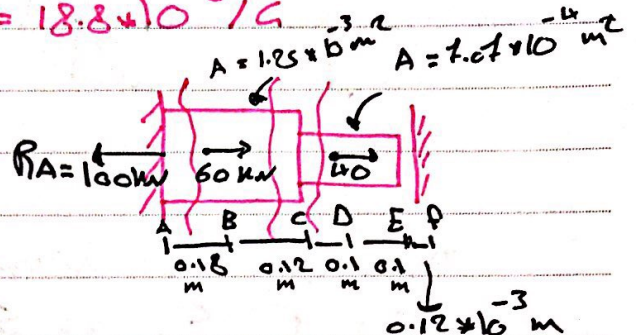 = 18.8*10⁻⁶/G
A = 1.25*10⁻³ m² A = 7.07*10⁻⁴ m²
RA = 100kN 60 kN 40
A B C D E P
0.18 m 0.12 m 0.1 m 0.1 m
0.12*10⁻³ m